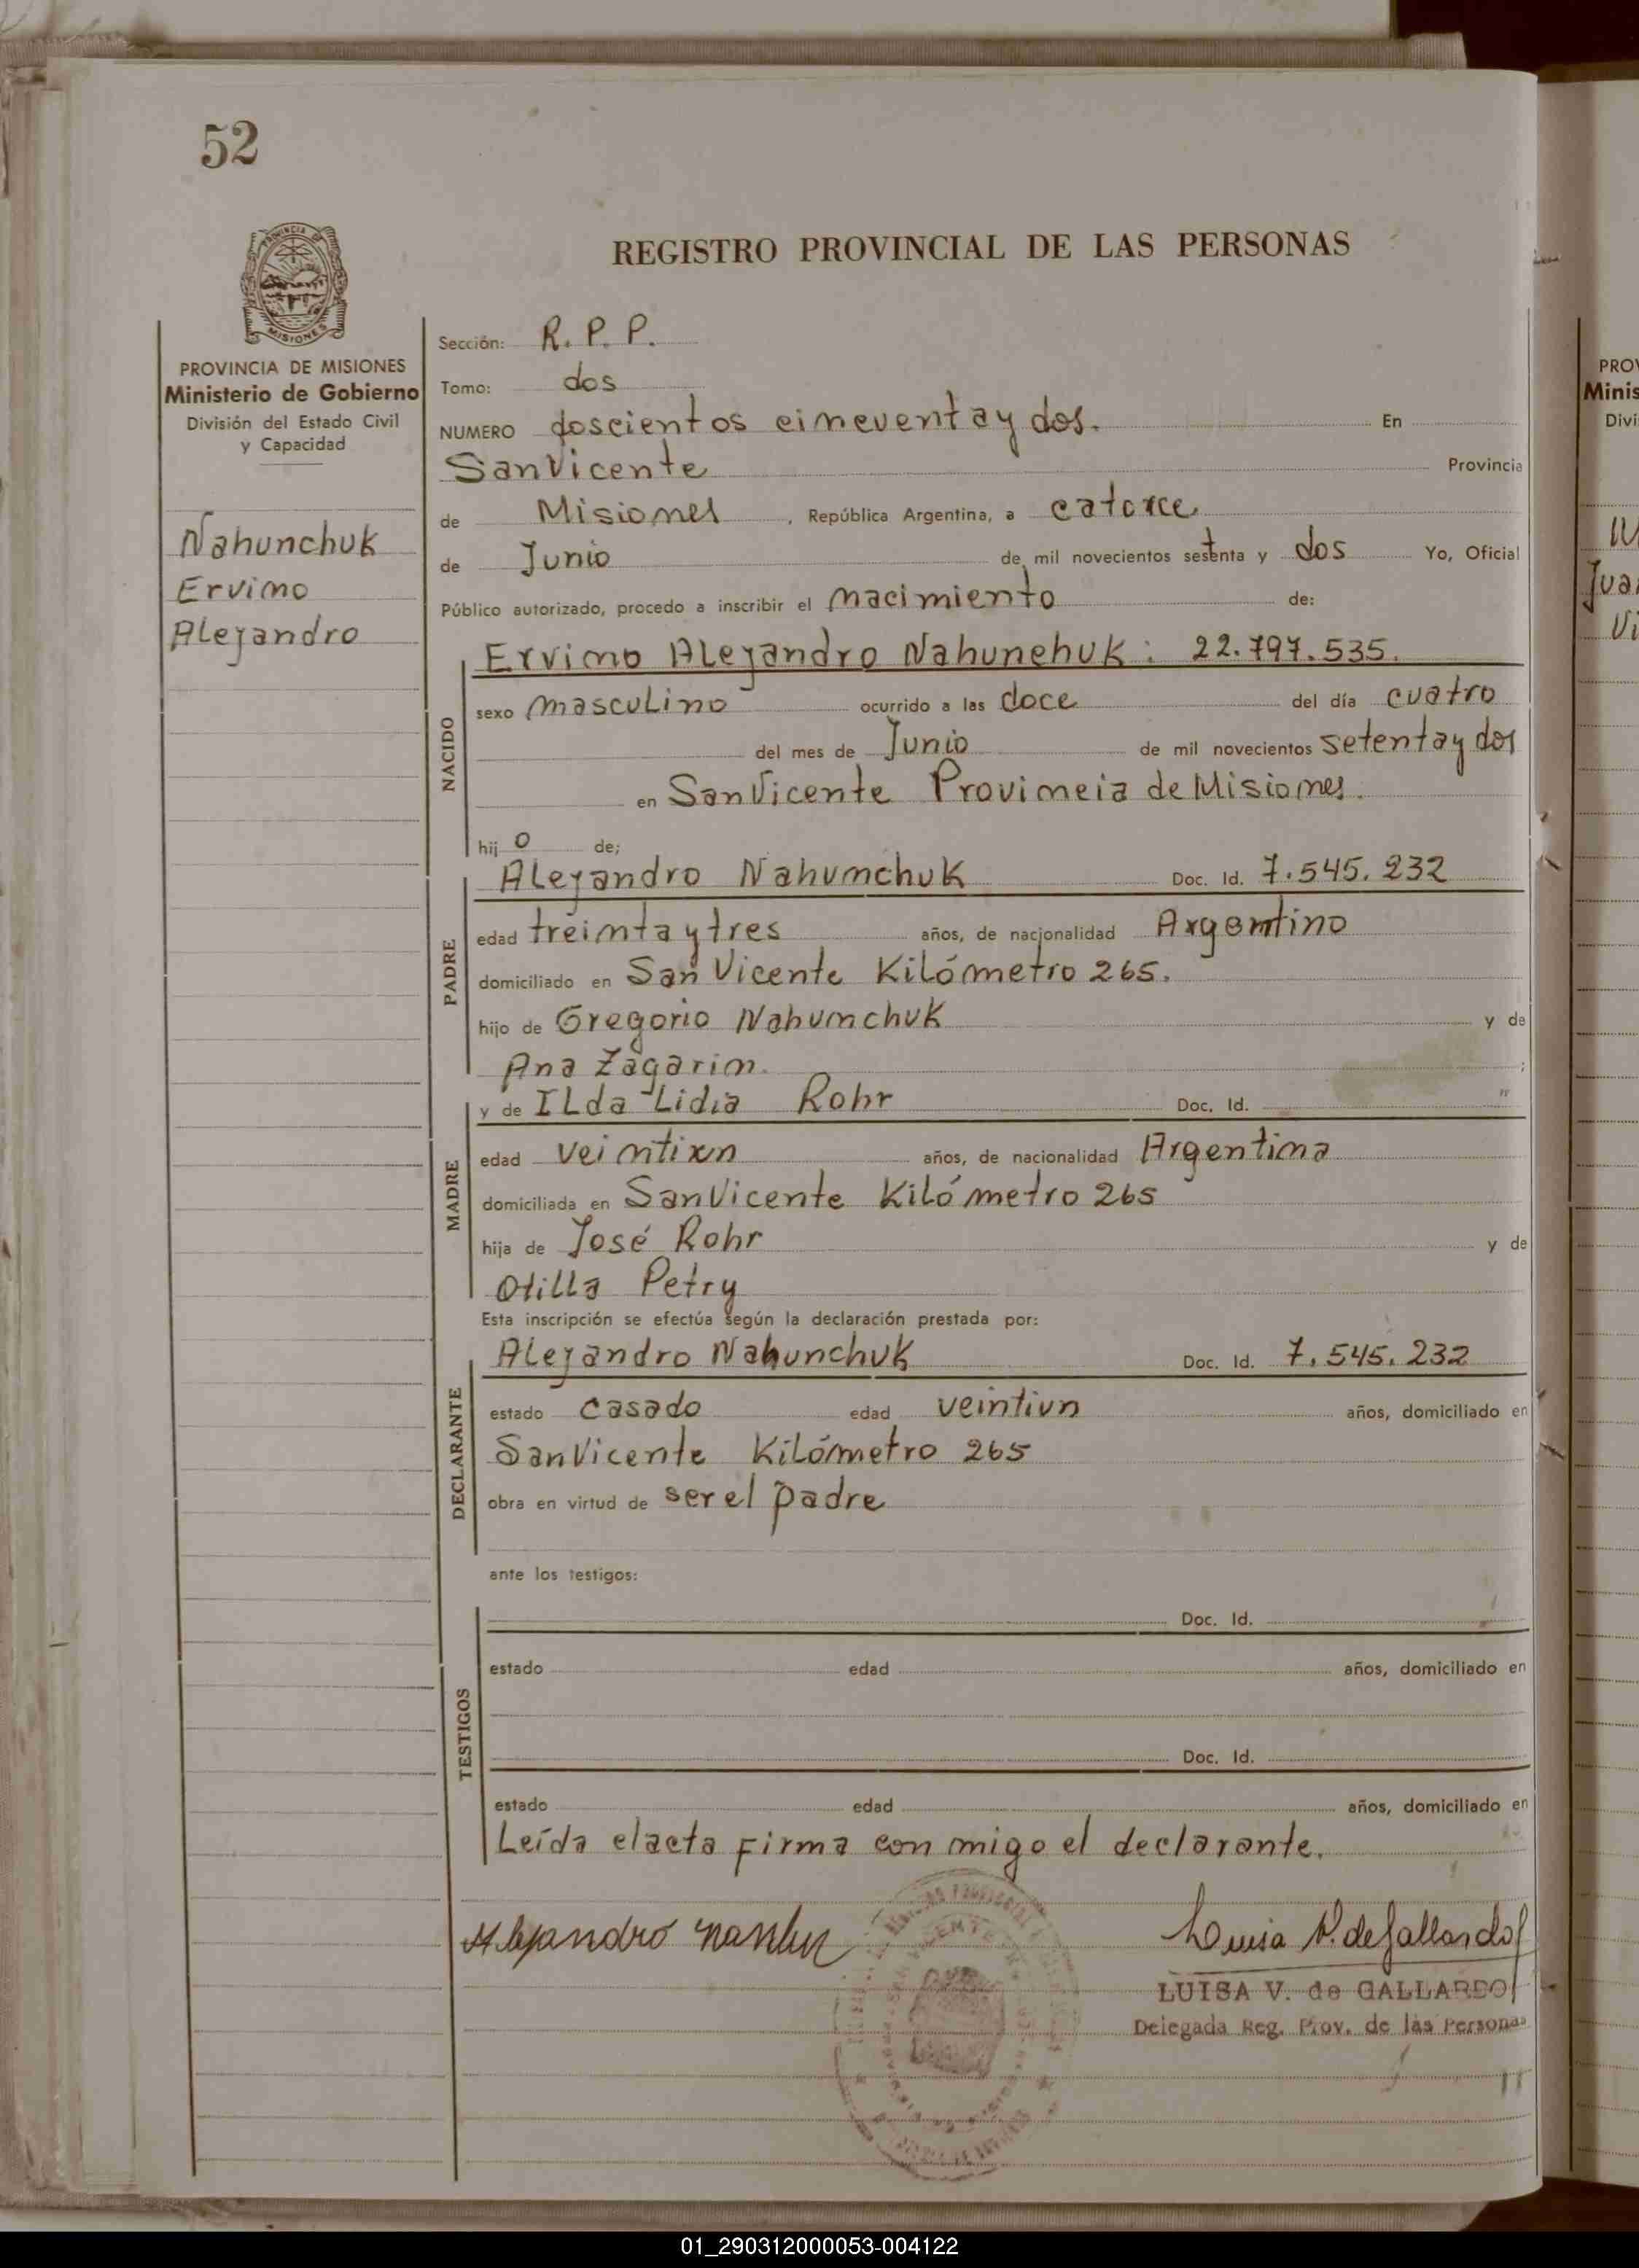 52
REGISTRO PROVINCIAL DE LAS PERSONAS
PROVINCIA DE MISIONES
Ministerio de Gobierno
División del Estado Civil
y Capacidad
Nahunchuk
Ervino
Alejandro
Sección: R. P. P.
Tomo: dos
NUMERO doscientos cincuenta y dos. En
San Vicente Provincia
de Misiones, República Argentina, a catorce
de Junio de mil novecientos setenta y dos Yo, Oficial
Público autorizado, procedo a inscribir el nacimiento de:
NACIDO
Ervino Alejandro Nahunchuk: 22.797.535.
sexo masculino ocurrido a las doce del día cuatro
del mes de Junio de mil novecientos setenta y dos
en San Vicente Provincia de Misiones.
hijo de;
PADRE
Alejandro Nahunchuk Doc. Id. 7.545.232
edad treinta y tres años, de nacionalidad Argentino
domiciliado en San Vicente Kilómetro 265.
hijo de Gregorio Nahunchuk y de
Ana Zagarin. ;
MADRE
y de ILda Lidia Rohr Doc. Id. "
edad veintiun años, de nacionalidad Argentina
domiciliada en San Vicente Kilómetro 265
hija de José Rohr y de
Otilla Petry
Esta inscripción se efectúa según la declaración prestada por:
DECLARANTE
Alejandro Nahunchuk Doc. Id. 7.545.232
estado casado edad veintiun años, domiciliado en
San Vicente Kilómetro 265
obra en virtud de ser el padre
ante los testigos:
TESTIGOS
Doc. Id.
estado edad años, domiciliado en
Doc. Id.
estado edad años, domiciliado en
Leída el acta firma con migo el declarante.
Alejandro
Luisa V. de Gallardo
LUISA V. de GALLARDO
Delegada Reg. Prov. de las Personas
01_290312000053-004122